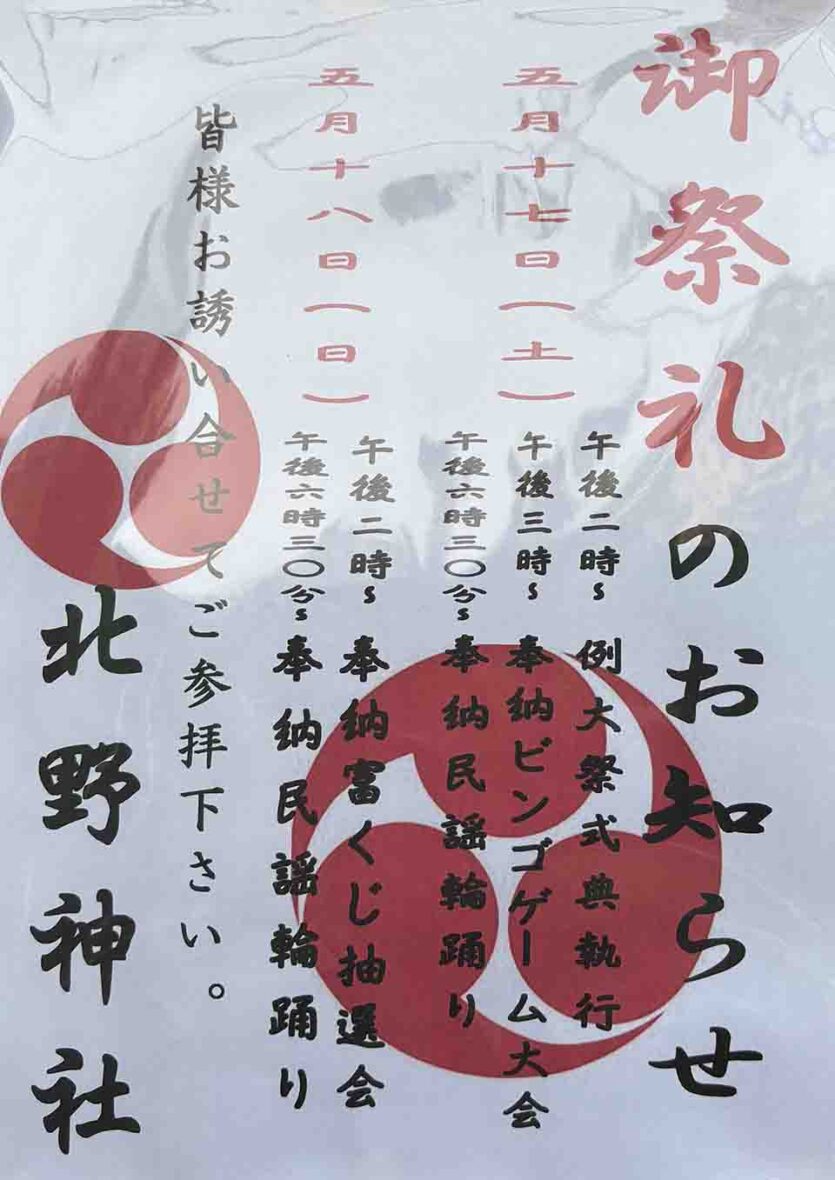 御祭礼のお知らせ
五月十七日(土)
午後二時~ 例大祭式典執行
午後三時~ 奉納ビンゴゲーム大会
午後六時三〇分~ 奉納民謡輪踊り
五月十八日(日)
午後二時~ 奉納富くじ抽選会
午後六時三〇分~ 奉納民謡輪踊り
皆様お誘い合せてご参拝下さい。
北野神社